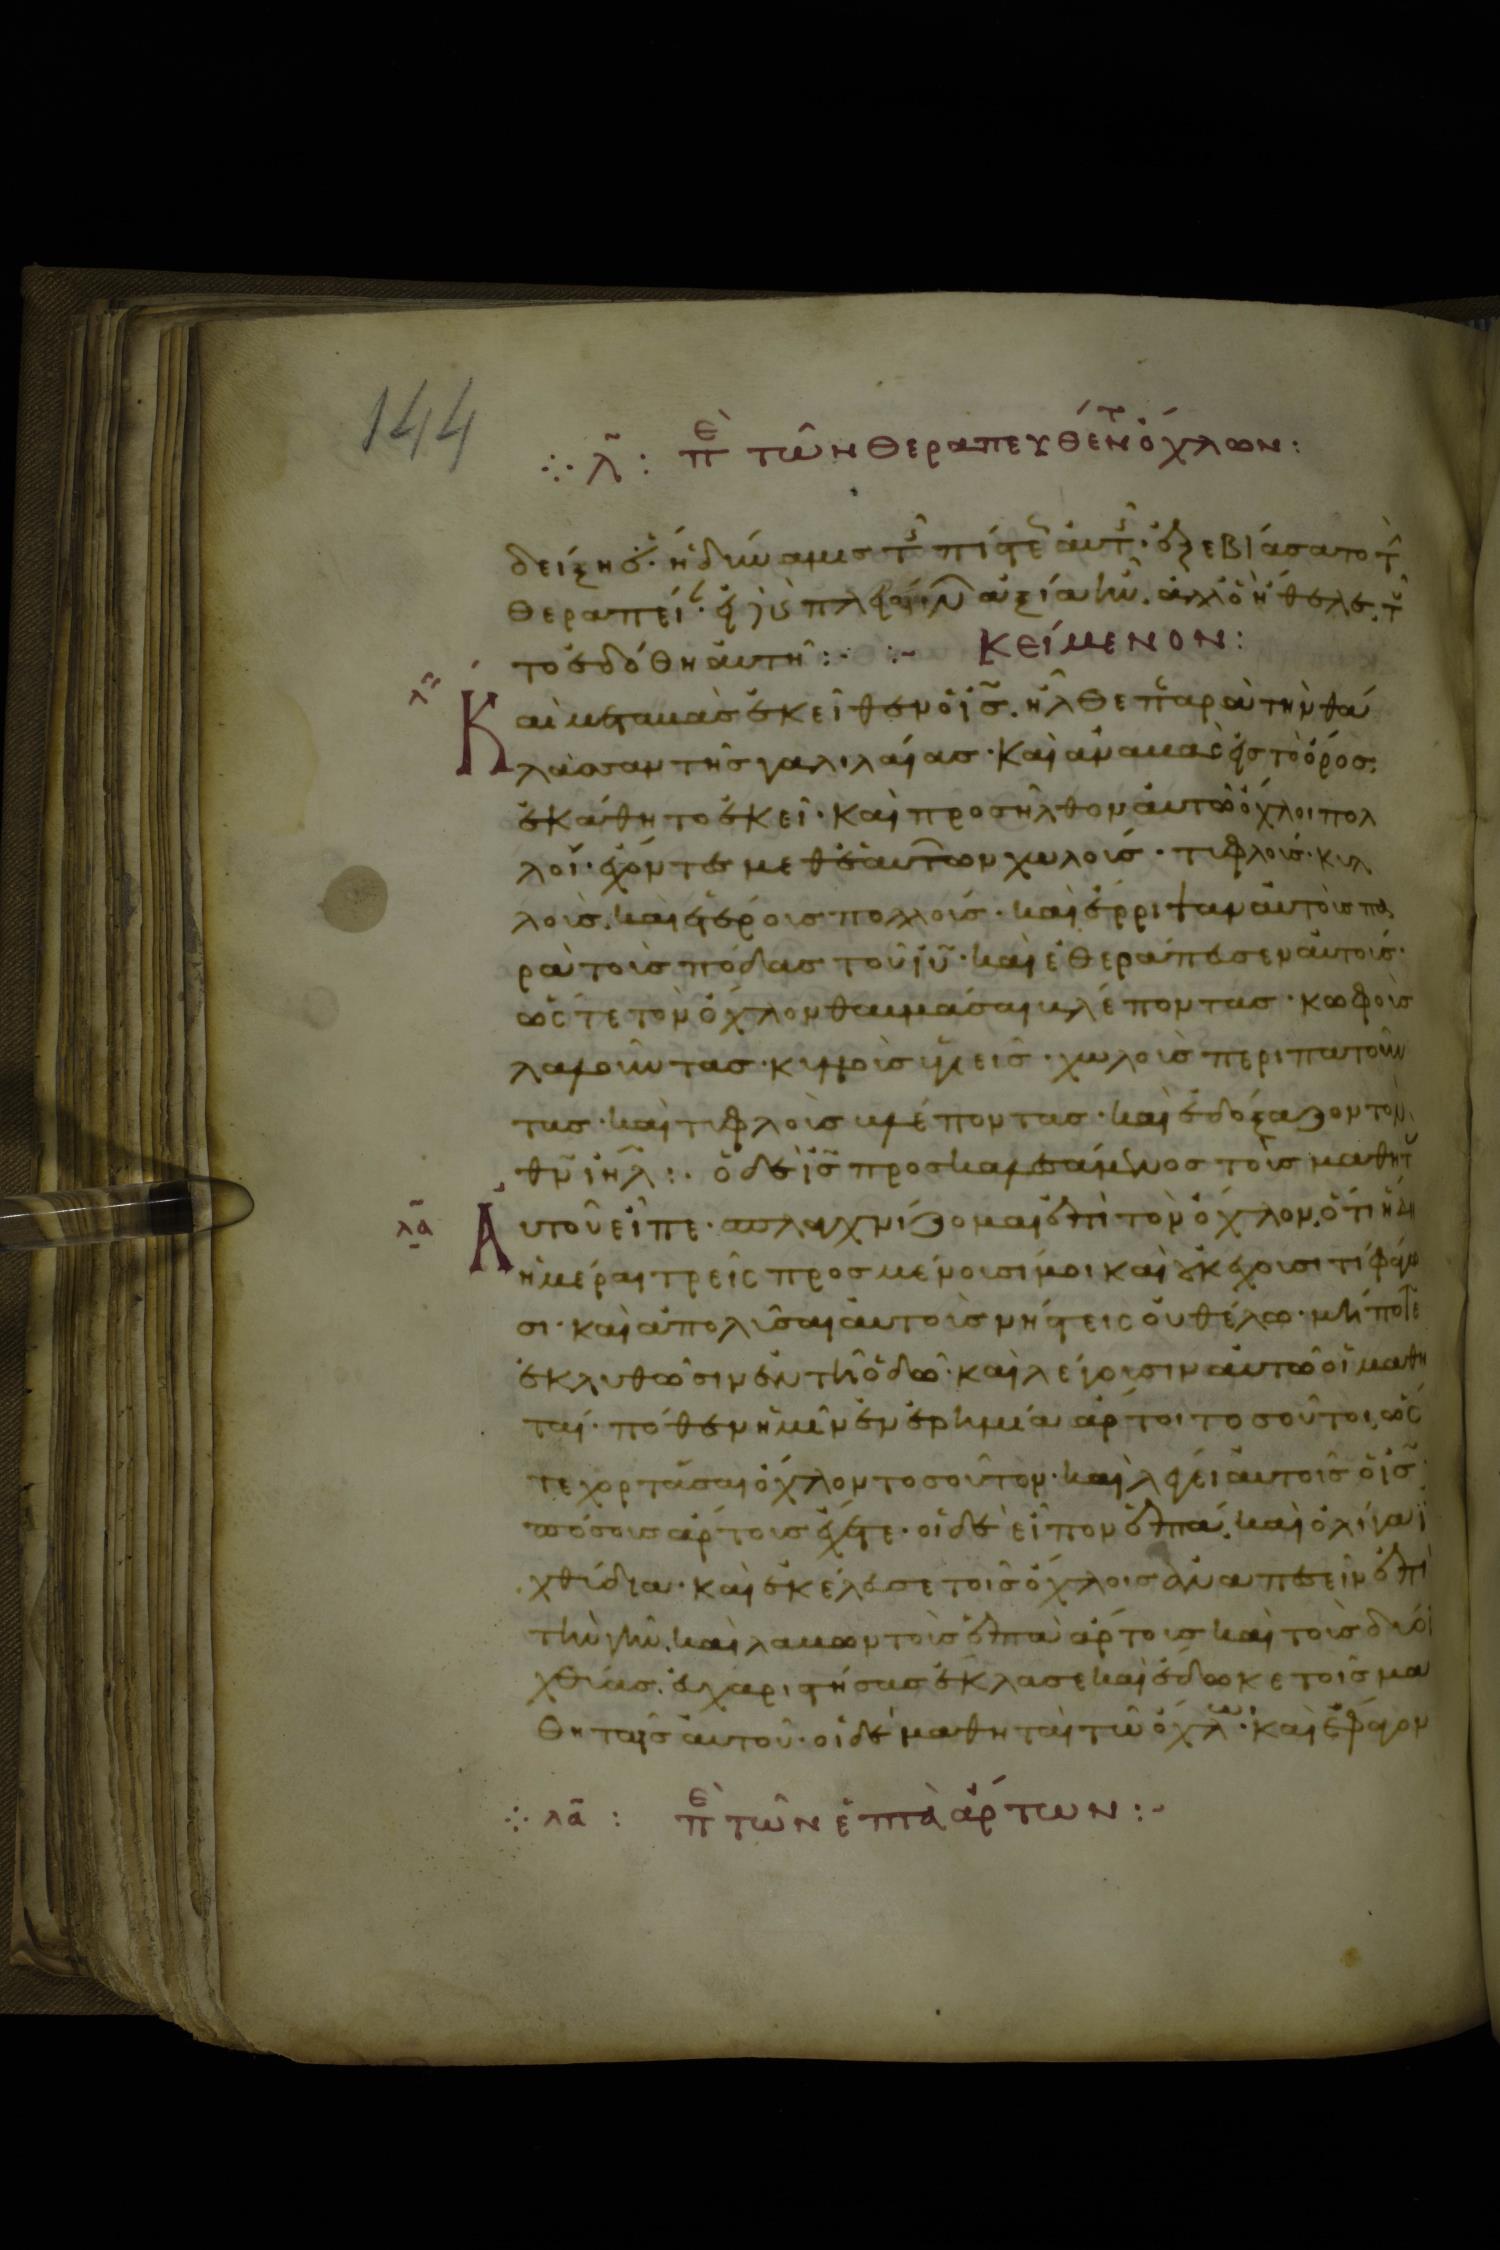 144
λ : περὶ τῶν θεραπευθέντων ὄχλων :
δείξης· ἡ δύναμις τῆς πίστεως αὐτῆς· ἐβιάσατο τὴν
τὸ ἐδόθη αὐτῆ :· :- Κείμενον :
λ Καὶ μεταβὰς ἐκεῖθεν ὁ ις. ἦλθε παρὰ τὴν θά
λασσαν τῆς γαλιλαίας· καὶ ἀναβὰς εἰς τὸ ὄρος·
ἐκάθητο ἐκεῖ· καὶ προσῆλθον αὐτῶ ὄχλοι πολ
λοὶ· ἔχοντες μεθ' ἑαυτῶν χωλούς· τυφλούς· κυλ
λοὺς. καὶ ἑτέρους πολλούς· καὶ ἔρριψαν αὐτοὺς πα
ρὰ τοὺς πόδας τοῦ ιυ· καὶ ἐθεράπευσεν αὐτούς·
ὥστε τὸν ὄχλον θαυμάσαι βλέποντας· κωφοὺς
λαλοῦντας· κυλλοὺς ὑγιεῖς· χωλοὺς περιπατοῦν
τας· καὶ τυφλοὺς βλέποντας· καὶ ἐδόξαζον τὸν
θν ιηλ :· ὁ δὲ ις προσκαλεσάμενος τοὺς μαθητὰς
λα Αὐτοῦ εἶπε· σπλαγχνίζομαι ἐπὶ τὸν ὄχλον. ὅτι ἤδη
ἡμέραι τρεῖς προσμένουσί μοι καὶ οὐκ ἔχουσι τί φάγω
σι· καὶ ἀπολῦσαι αὐτοὺς νήστεις οὐ θέλω· μήποτε
ἐκλυθῶσιν ἐν τῆ ὁδῶ· καὶ λέγουσιν αὐτῶ οἱ μαθη
ταί· πόθεν ἡμῖν ἐν ἐρημία ἄρτοι τοσοῦτοι, ὥς
τε χορτάσαι ὄχλον τοσοῦτον· καὶ λέγει αὐτοῖς ὁ ις·
πόσους ἄρτους ἔχετε· οἱ δὲ εἶπον ἑπτά. καὶ ὀλίγα ἰ
χθύδια· καὶ ἐκέλευσε τοῖς ὄχλοις ἀναπεσεῖν ἐπὶ
τὴν γῆν. καὶ λαβὼν τοὺς ἑπτὰ ἄρτους καὶ τοὺς δύο ἰ
χθύας. εὐχαριστήσας ἔκλασε καὶ ἔδωκε τοῖς μα
θηταῖς αὐτοῦ· οἱ δὲ μαθηταὶ τῶ ὄχλω· καὶ ἔφαγον
λα : περὶ τῶν ἑπτὰ ἄρτων :-